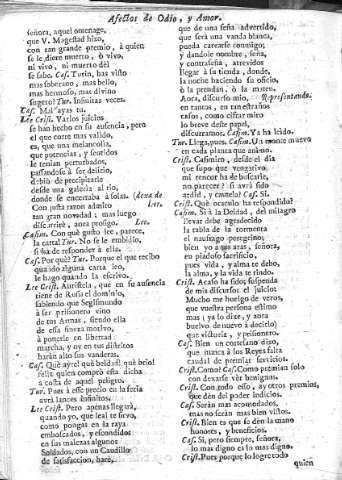 Afectos de Odio, y Amor.
señora, aquel omenage,
que V. Magestad hizo,
con tan grande premio, à quien
se le diere muerto, ò vivo,
ni vivo, ni muerto dèl
se sabe. Cas. Turin, has visto
mas soberano, mas bello,
mas hermoso, mas divino
sugeto? Tur. Infinitas veces.
Cas. Mal ayas tu.
Lee Crist. Varios juicios
se han hecho en su ausencia, pero
el que corre mas valido,
es, que una melancolìa,
que potencias, y sentidos
le tenian perturbados,
passandose à ser delirio,
debiò de precipitarle
desde una galeria al rio,
donde se encerraba à solas. (dexa de
Con justa razon admiro Leer.
tan grande novedad; mas luego
discurrirè, aora prosigo. Lee.
Casim. Con què gusto lee, parece,
la carta! Tur. No se le embidio,
si ha de responder à ella.
Cas. Por què? Tur. Porque el que recibo
quando alguna carta leo,
le hago quando la escrivo.
Lee Crist. Auristela, que en su ausencia
tiene de Rusia el dominio,
sabiendo que Segismundo
à ser prisionero vino
de tus Armas, siendo ella
de essa fineza motivo,
à ponerle en libertad
marcha, y ay en tus distritos
haràn alto sus vanderas.
Cas. Què ayre! què beldad! què brio!
feliz quien comprò esta dicha
à costa de aquel peligro.
Tur. Pues à esse precio en la feria
avrà lances infinitos.
Lee Crist. Pero apenas llegarà,
quando yo, que leal te sirvo,
como pongas en la raya
emboscados, y escondidos
en sus malezas algunos
Soldados, con un Caudillo
de satisfaccion, harè,
que de una seña advertido,
que serà una vanda blanca,
pueda carearse conmigo;
y dandole nombre, seña,
y contraseña, atrevidos
llegar à su tienda, donde
la noche haciendo su oficio,
ò la prendan, ò la maten.
Aora, discurso mio, Representando.
en tantas, en tan estraños
casos, como cifrar miro
lo breve deste papel,
discurramos. Casim. Ya ha leìdo.
Tur. Llega, pues. Casim. Un monte muevo
en cada planta que animo.
Crist. Casimiro, desde el dia
que supo que vengativo
mi rencor ha de buscarle,
no parece? si avrà sido
ardid, y cautela? Cas. Si.
Crist. Què oraculo ha respondido?
Casim. Si à la Deidad, del milagro
llevar debe agradecido
la tabla de la tormenta
el naufrago peregrino;
bien yo à essas aras, señora,
en piadoso sacrificio,
pues vida, y alma te debo,
la alma, y la vida te rindo.
Crist. Acaso ha sido; suspenda
de mis discursos el juicio:
Mucho me huelgo de veros,
que vuestra persona estimo
mas (ya lo dixe, y aora
buelvo de nuevo à decirlo)
que victoria, y prisionero.
Cas. Bien un cortesano dixo,
que nunca à los Reyes falta
caudal de premiar servicios.
Crist. Como? Cas. Como premian solo
con dexarse vèr benignos.
Crist. Con todo esso, ay otros premios,
que den del poder indicios.
Cas. Seràn mas acomodados,
mas no seràn mas bien vistos.
Crist. Bien es que se den la mano
honores, y beneficios.
Cas. Si, pero siempre, señora,
lo mas digno es lo mas digno.
Crist. Pues porque lo logreis todo
quien